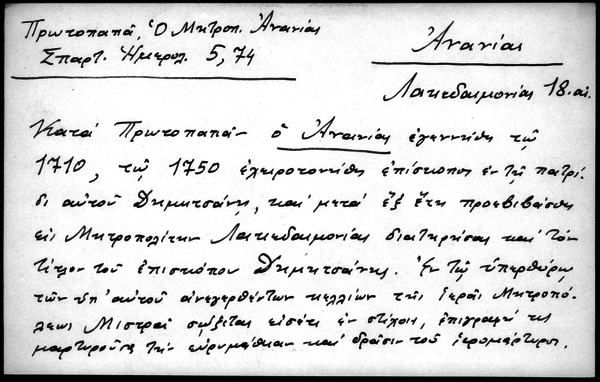 Πρωτοπαπᾶ, Ὁ Μητροπ. Ἀνανίας
Σπαρτ. Ἡμερολ. 5, 74
Ἀνανίας
Λακεδαιμονίας 18. αἰ.
Κατά Πρωτοπαπᾶν ὁ Ἀνανίας ἐγεννήθη τῷ
1710, τῷ 1750 ἐχειροτονήθη ἐπίσκοπος ἐν τῇ πατρί-
δι αὐτοῦ Δημητσάνῃ, καί μετά ἕξ ἔτη προεβιβάσθη
εἰς Μητροπολίτην Λακεδαιμονίας διατηρήσας καί τόν
τίτλον τοῦ ἐπισκόπου Δημητσάνης. Ἐν τῷ ὑπερθύρῳ
τῶν ὑπ' αὐτοῦ ἀνεγερθέντων κελλίων τῆς ἱερᾶς Μητροπό-
λεως Μιστρᾶ σῴζεται εἰσέτι ἐν στίχοις, ἐπιγραφή τις
μαρτυροῦσα τήν εὐρυμάθειαν καί δρᾶσιν τοῦ ἱερομάρτυρος.